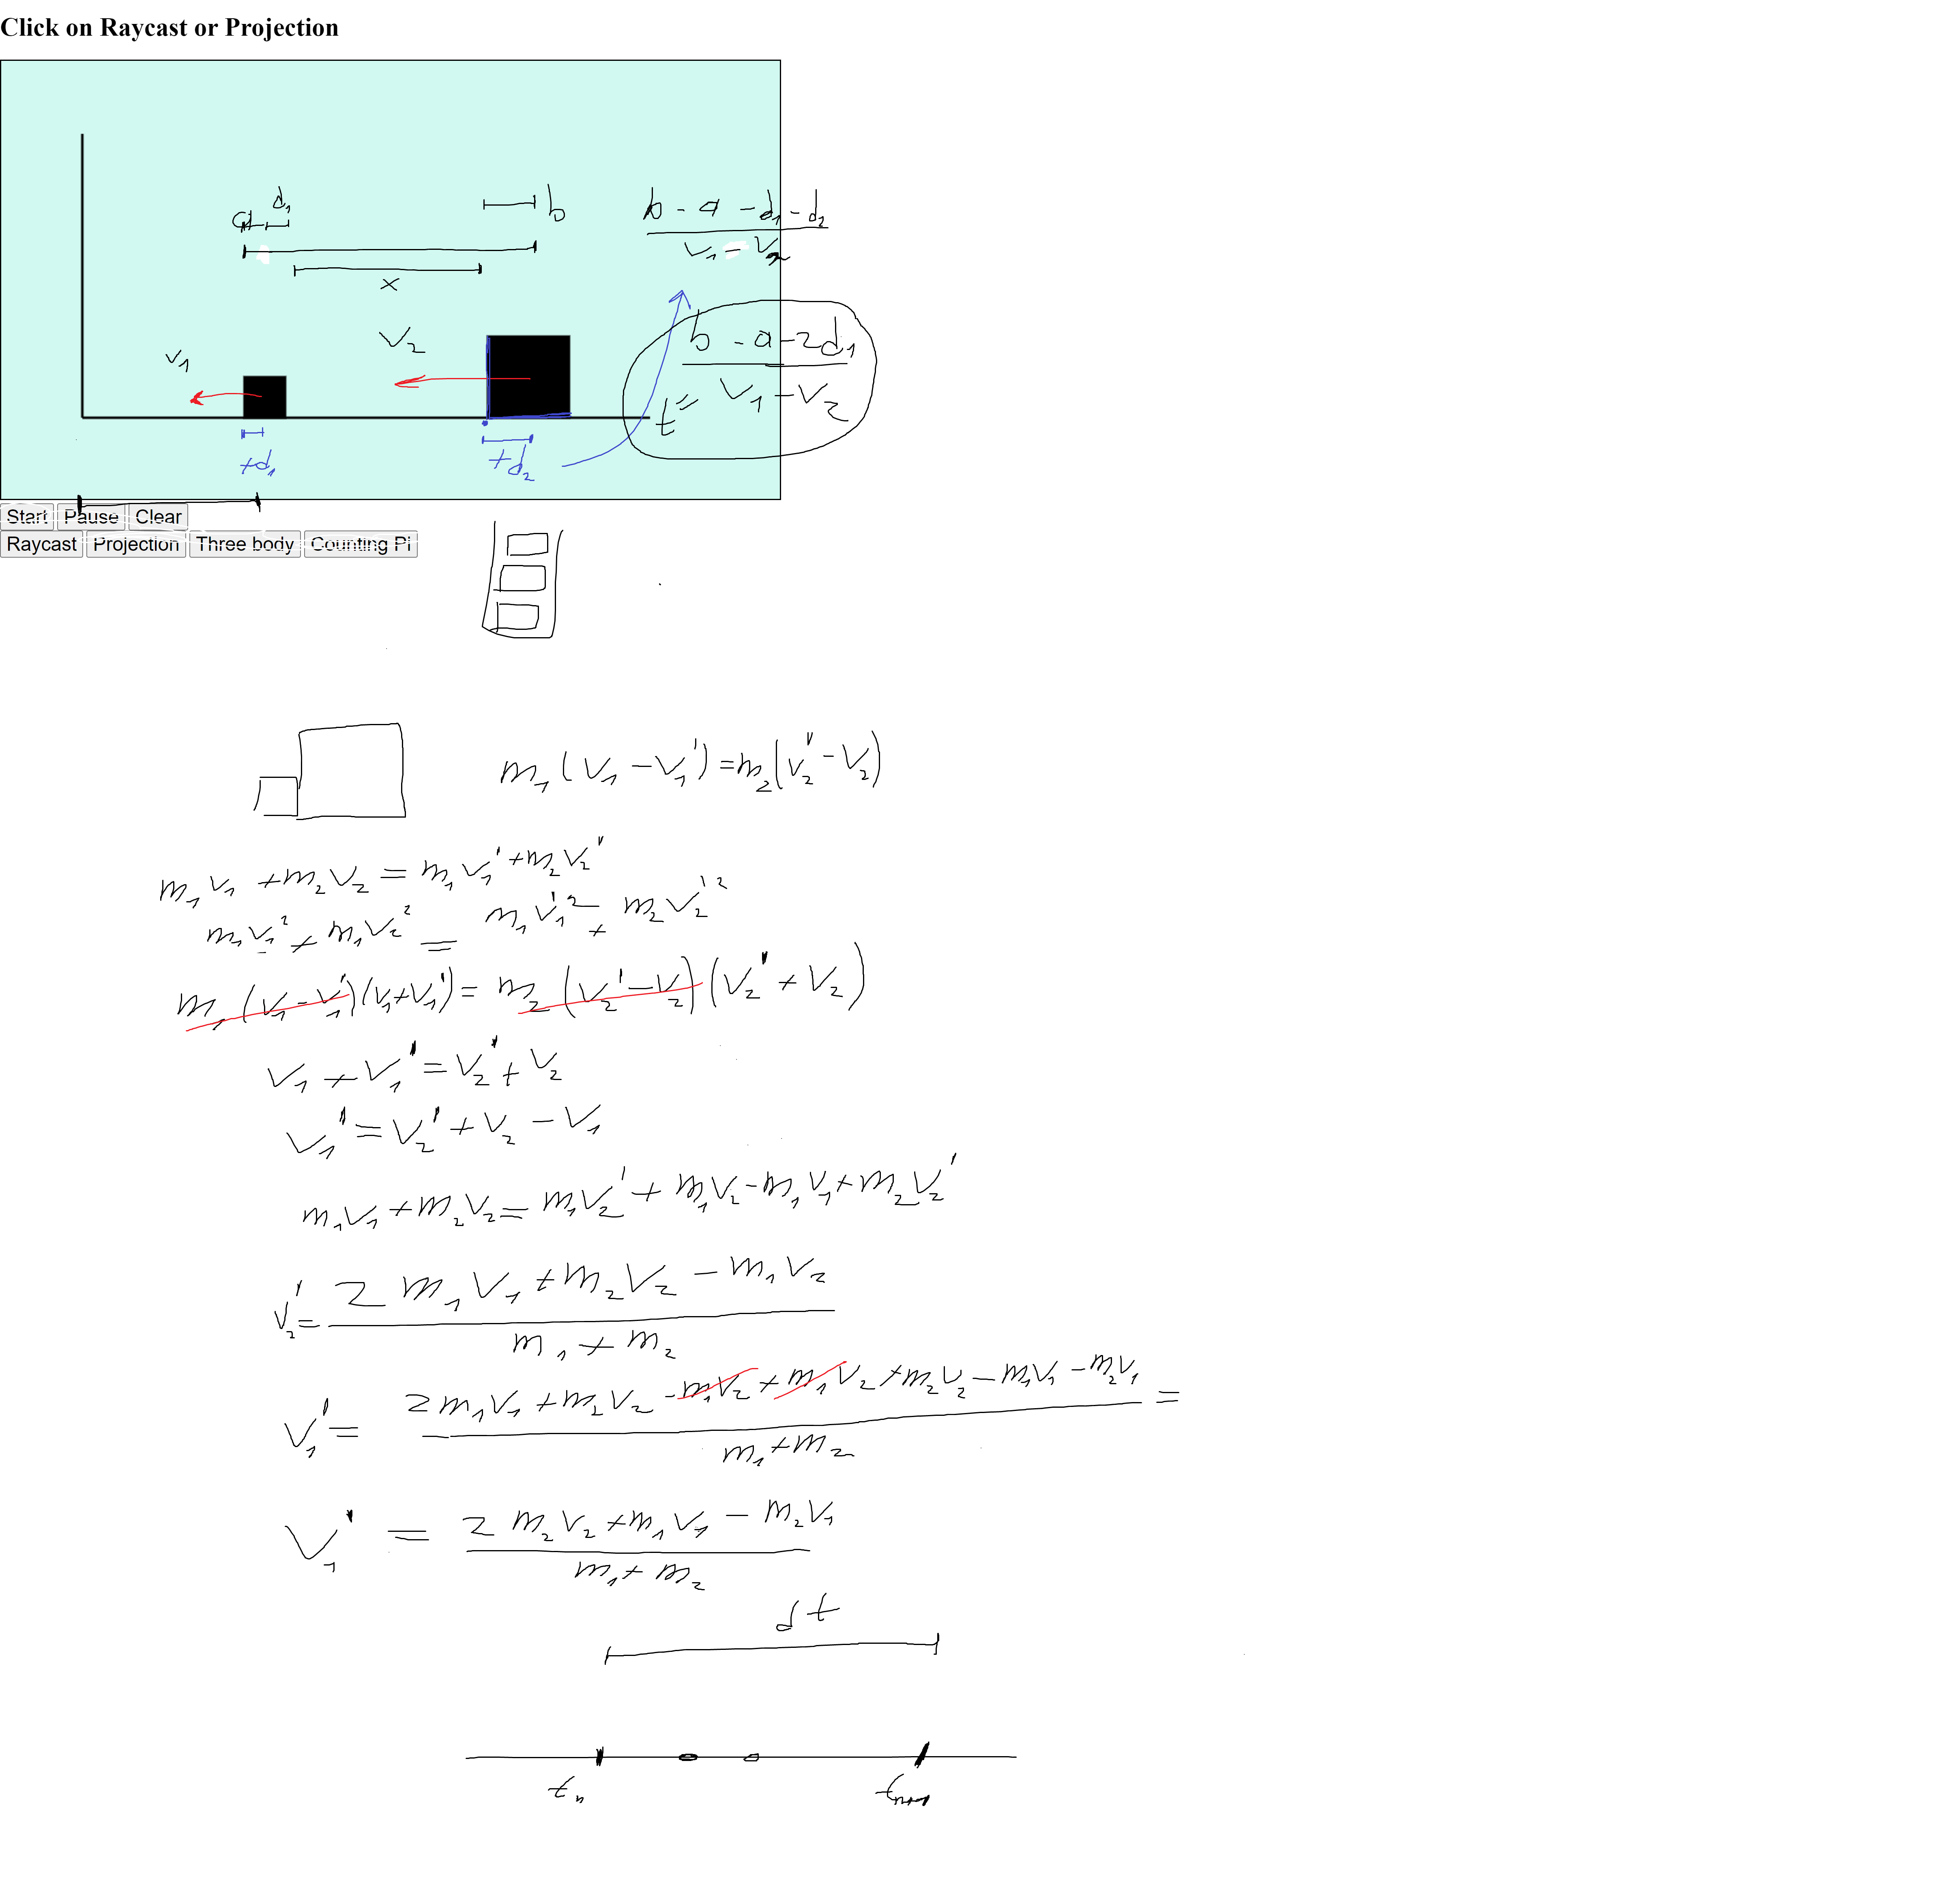 Click on Raycast or Projection
d₁
a
b
b - a - d₁ - d₂
v₁ - v₂
x
v₁
V₂
b - a - 2d₁
t = V₁ - V₂
+d₁
+d₂
Start Pause Clear
Raycast Projection Three body Counting Pi
m₁(V₁ - V₁') = m₂(V₂' - V₂)
m₁v₁ + m₂V₂ = m₁v₁' + m₂V₂'
m₁v₁² + m₁V₂² = m₁v₁'² + m₂V₂'²
m₁(v₁ - v₁')(v₁ + v₁') = m₂(V₂' - V₂)(V₂' + V₂)
V₁ + V₁' = V₂' + V₂
V₁' = V₂' + V₂ - V₁
m₁V₁ + m₂V₂ = m₁V₂' + m₁V₂ - m₁V₁ + m₂V₂'
2 m₁V₁ + m₂V₂ - m₁V₂
v₂' =
m₁ + m₂
2m₁V₁ + m₂V₂ - m₁V₂ + m₁V₂ + m₂V₂ - m₁V₁ - m₂V₁
V₁' = =
m₁ + m₂
V₁' = 2 m₂V₂ + m₁V₁ - m₂V₁
m₁ + m₂
dt
tₙ tₙ₊₁